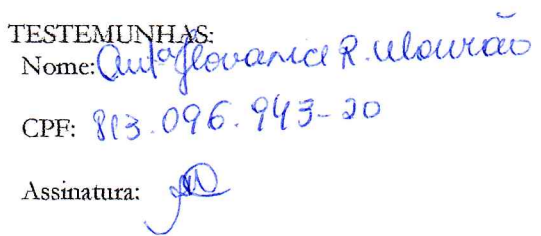 TESTEMUNHAS:
Nome: Antª Geovania R. Mourão
CPF: 813.096.943-20
Assinatura: